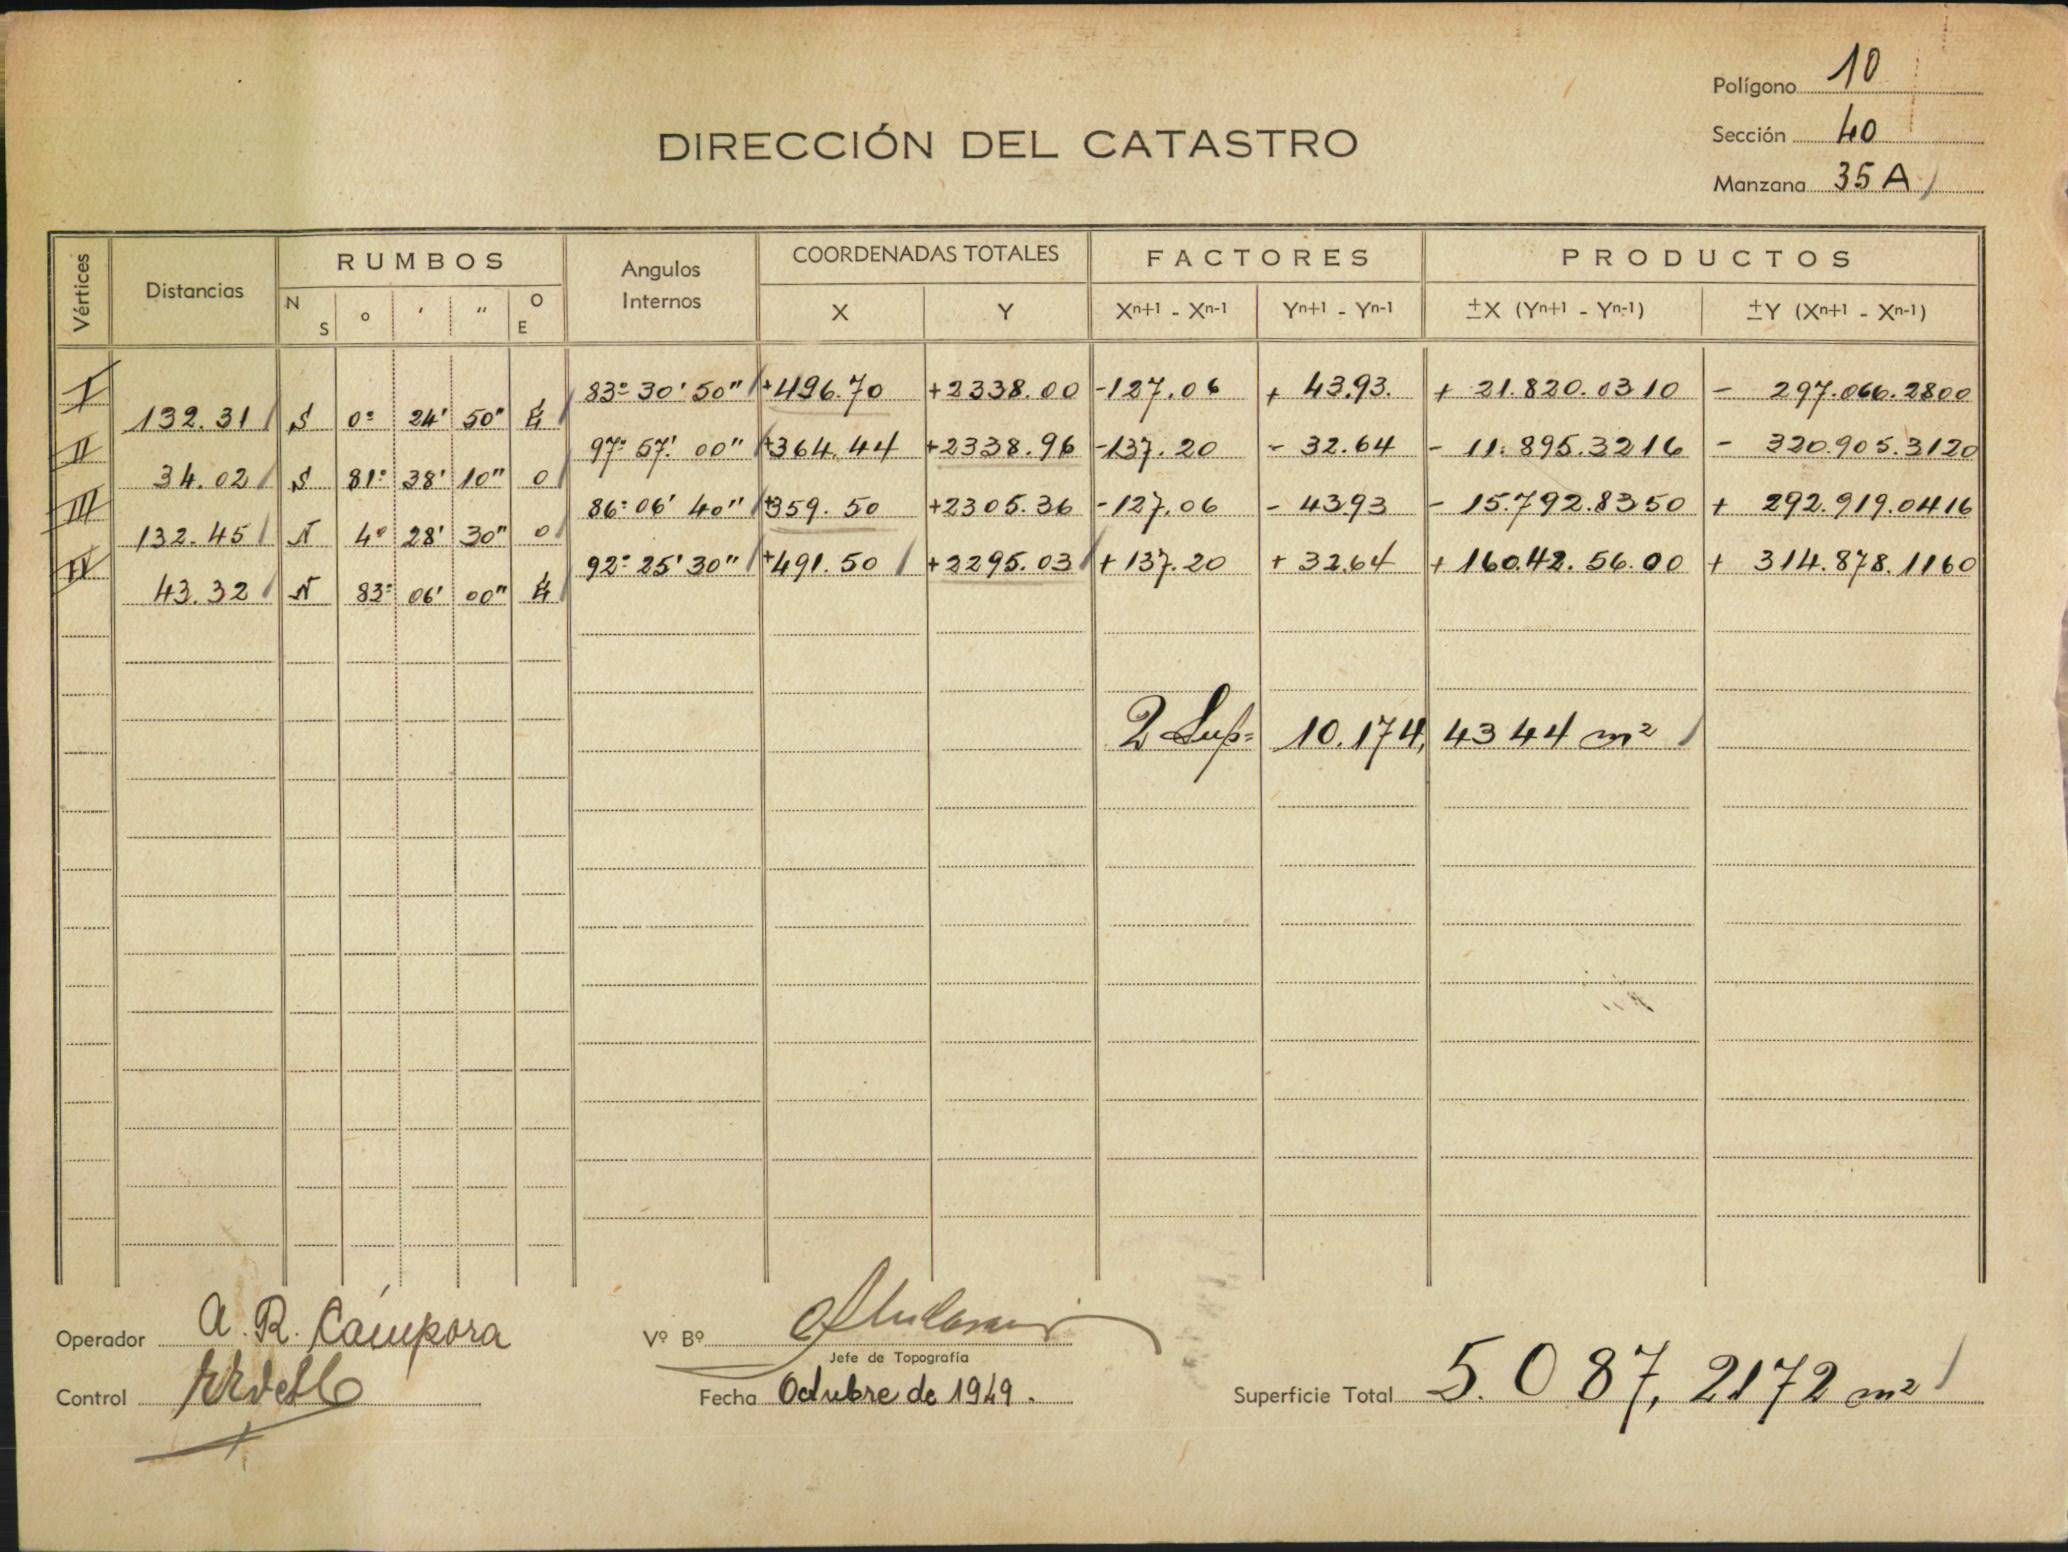 Polígono 10
DIRECCIÓN DEL CATASTRO
Sección 40
Manzana 35 A
Vértices Distancias RUMBOS Angulos Internos COORDENADAS TOTALES FACTORES PRODUCTOS
N S o ' " O E X Y Xn+1 - Xn-1 Yn+1 - Yn-1 ±X (Yn+1 - Yn-1) ±Y (Xn+1 - Xn-1)
I 83º 30' 50" +496.70 +2338.00 -127.06 + 43.93. + 21.820.0310 - 297.066.2800
132.31 S 0º 24' 50" E
II 97º 57' 00" +364.44 +2338.96 -137.20 - 32.64 - 11.895.3216 - 320.905.3120
34.02 S 81º 38' 10" O
III 86º 06' 40" +359.50 +2305.36 -127.06 - 43.93 - 15.792.8350 + 292.919.0416
132.45 N 4º 28' 30" O
IV 92º 25' 30" +491.50 +2295.03 + 137.20 + 32.64 + 160.42.56.00 + 314.878.1160
43.32 N 83º 06' 00" E
2 Sup= 10.174,4344 m²
Operador A. R. Cámpora
Vº Bº
Jefe de Topografía
Control
Fecha Octubre de 1949.
Superficie Total 5.087,2172 m²